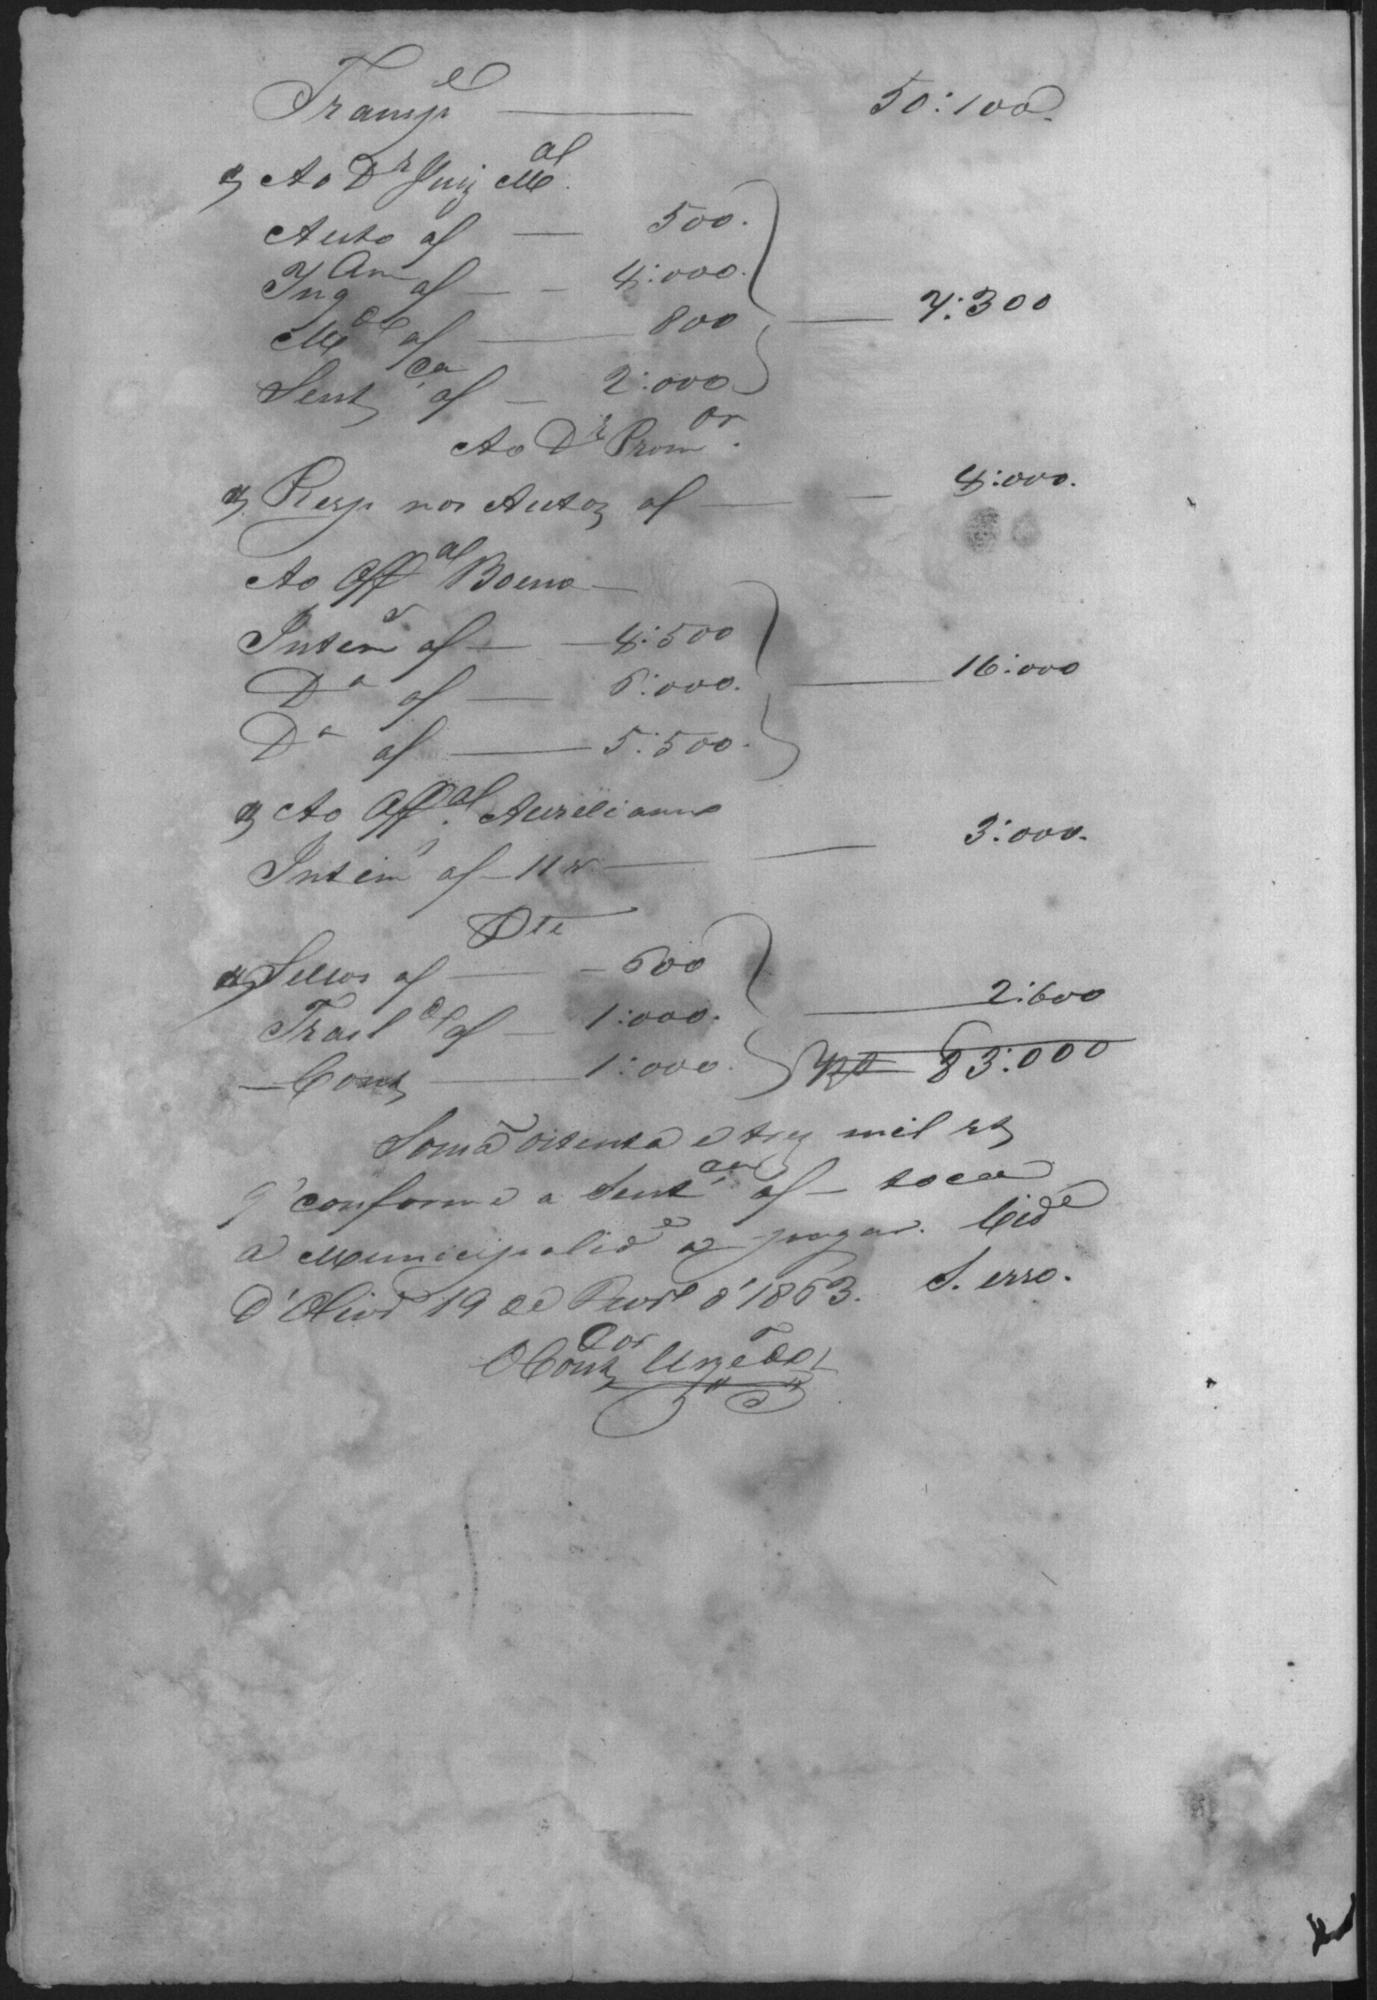 Transp.e 50:100
Ao Dr Juiz M.al
Auto af 500.
Inq.am af 4:000.
M.do af 800 7:300
Sent.ça af 2:000
Ao Dr Prom.or
Resp nos Autos af 4:000.
Ao Off.al Bueno
Intim af 4:500
Da af 6:000. 16:000
Da af 5:500.
Ao Off.al Aureliano
Intim af 11 3:000.
Sellos af 600
Trasl.do af 1:000. 2:600
Cont 1:000. 83:000
Soma oitenta e trez mil rs
q' conforme a Sent.ça af toca
a Municipalid.e a pagar. Cid.e
19 de d'1863. S. erro.
O Cont.dor